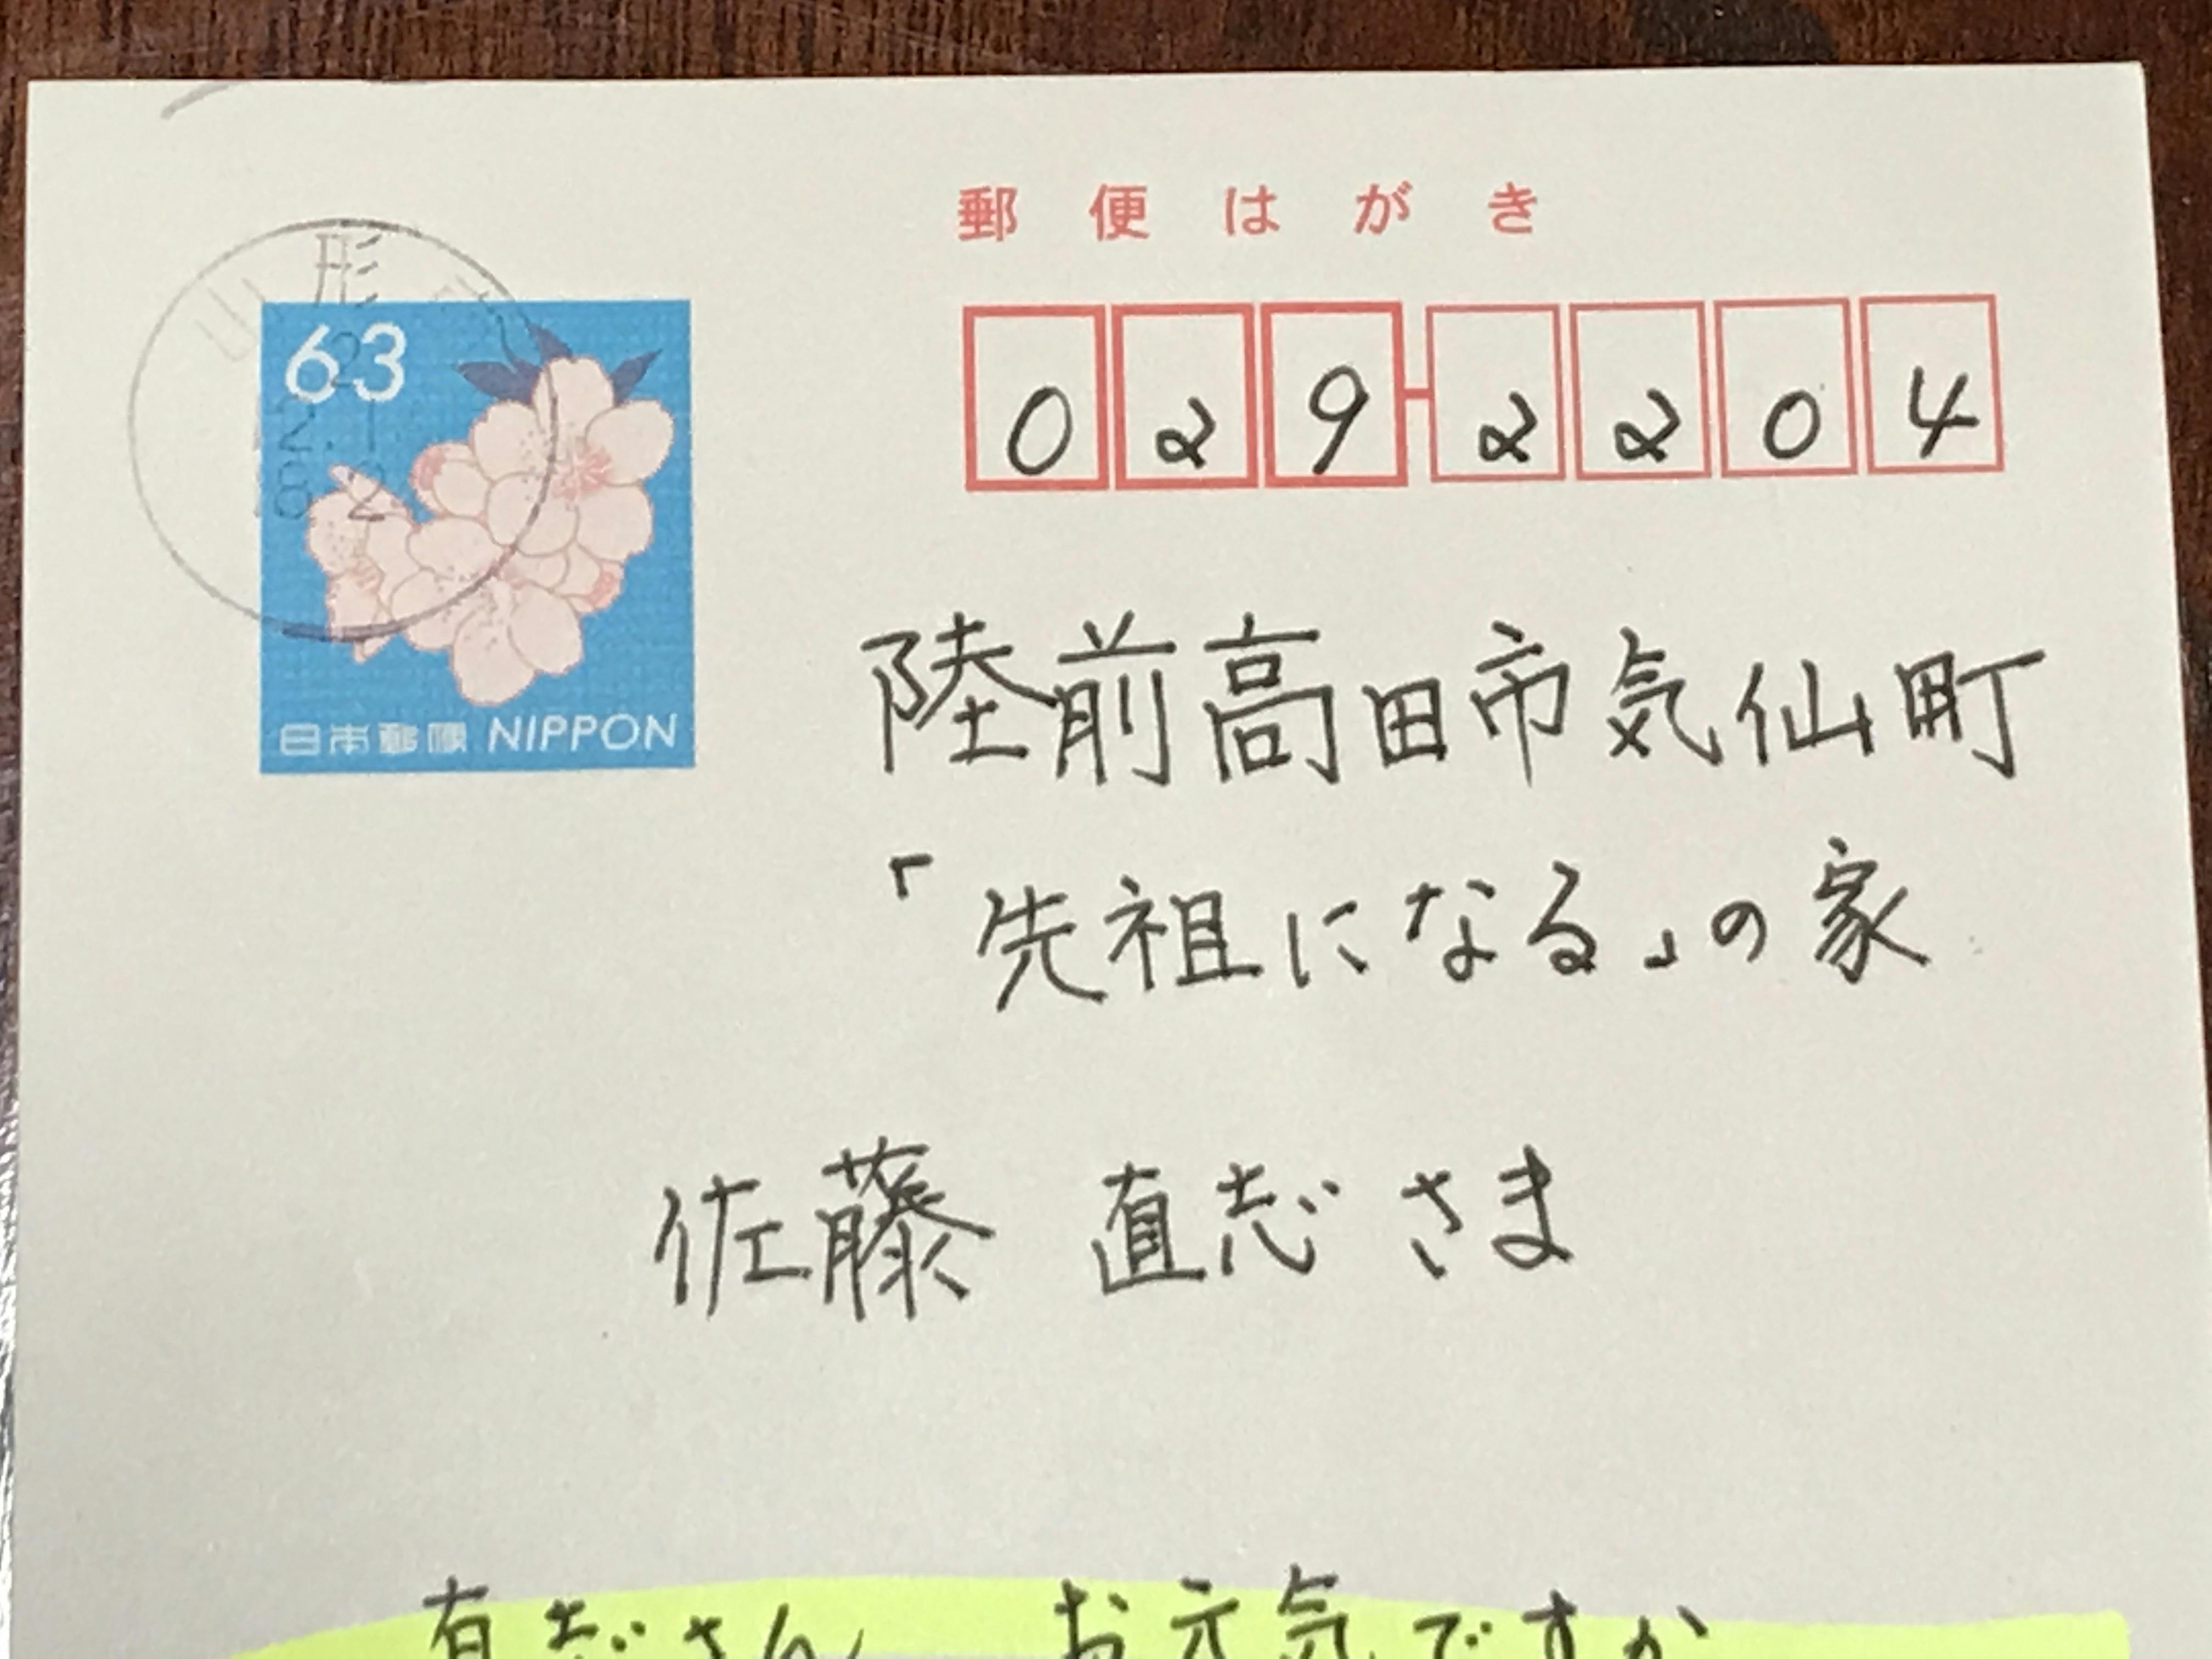 郵便はがき
山形
63
日本郵便 NIPPON
029-2204
陸前高田市気仙町
「先祖になる」の家
佐藤 直志さま
直志さん お元気ですか